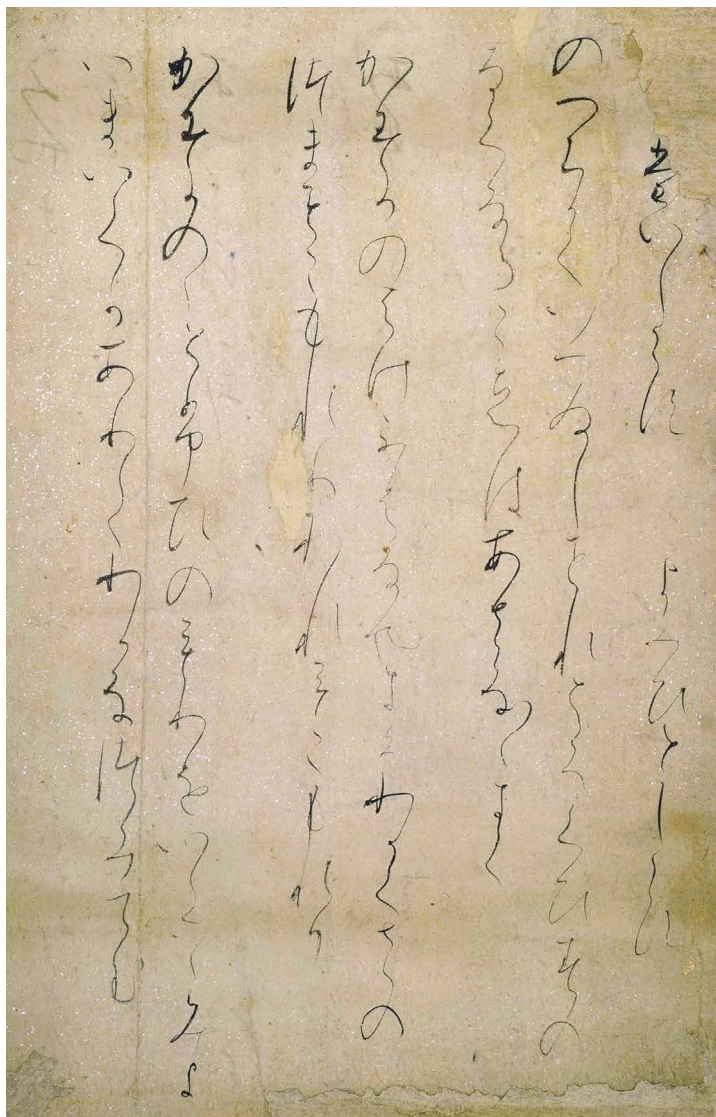 たいしらす　よみひとしらす
のへちかくいへゐしせれはうくひすの
なくなるこゑはあさな〱きく
かすかのはけふはなやきそわかくさの
つまもこもれりわれもこもれり
かすかのゝとふひのもりをいてゝみよ
いまいくかありてわかなつみてむ